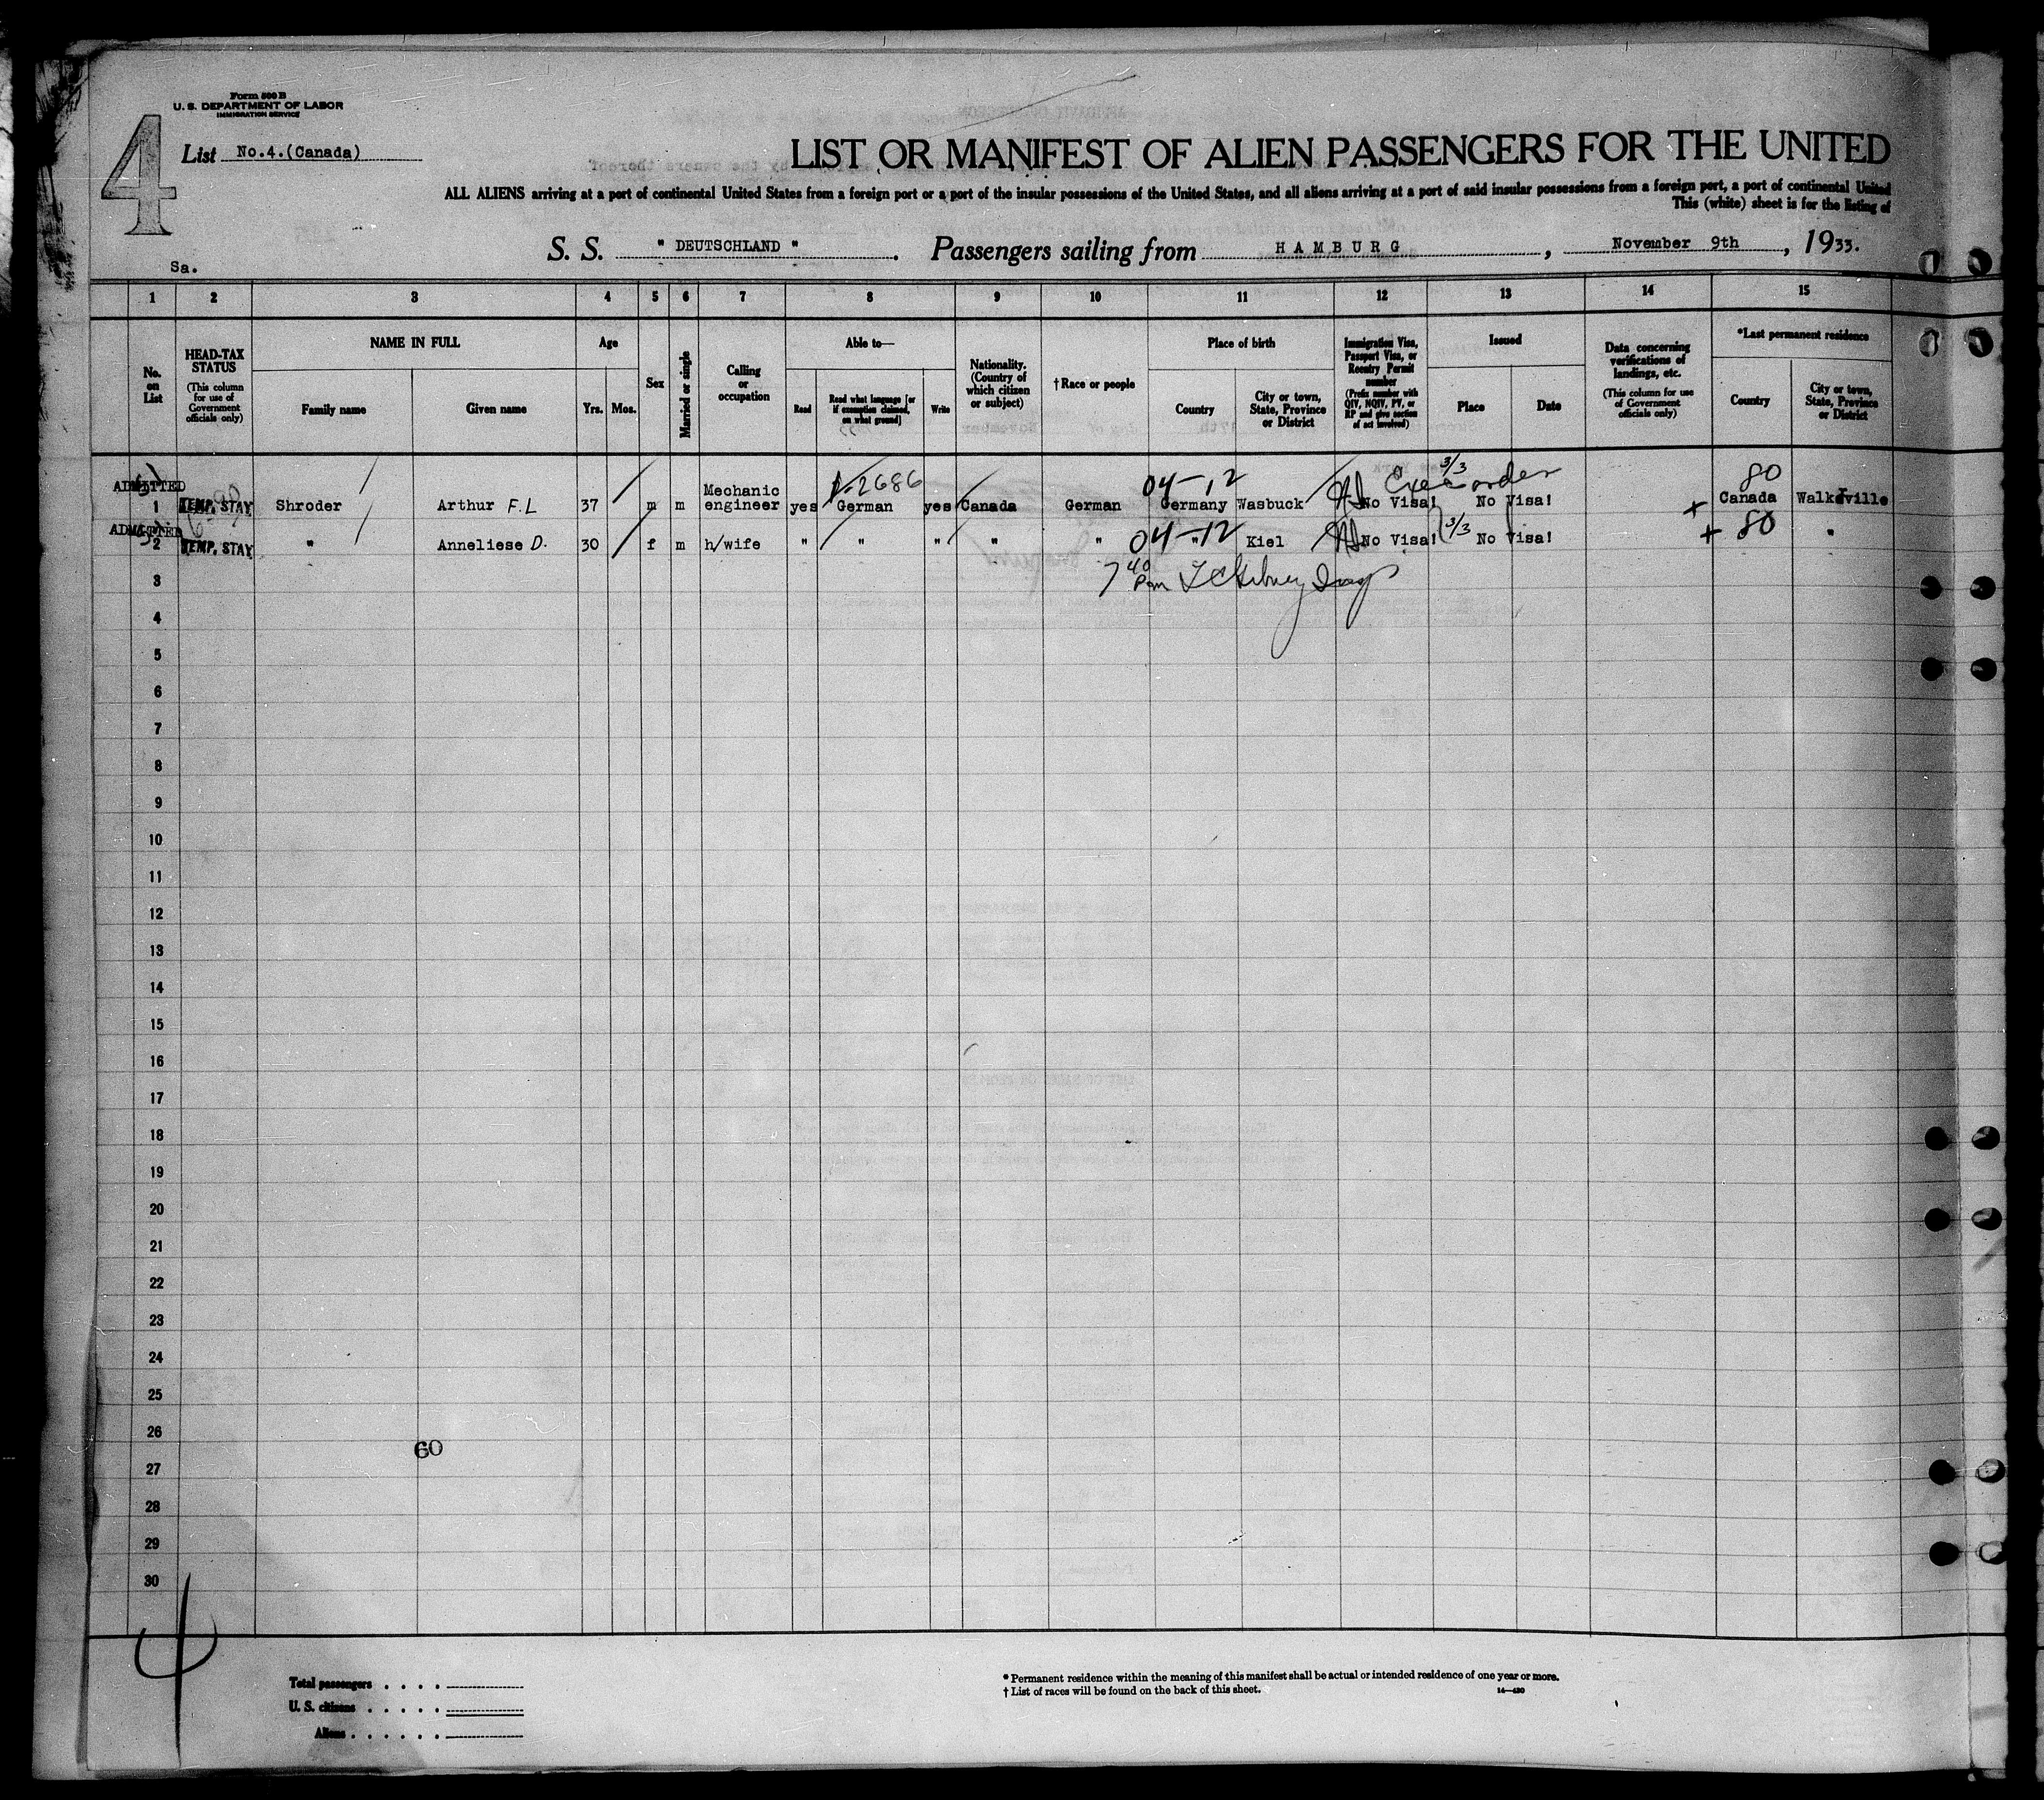 Form 500 B
U. S. DEPARTMENT OF LABOR
IMMIGRATION SERVICE
4
List No.4.(Canada)
LIST OR MANIFEST OF ALIEN PASSENGERS FOR THE UNITED
ALL ALIENS arriving at a port of continental United States from a foreign port or a port of the insular possessions of the United States, and all aliens arriving at a port of said insular possessions from a foreign port, a port of continental United
This (white) sheet is for the listing of
S. S. " DEUTSCHLAND " . Passengers sailing from HAMBURG , November 9th , 1933.
Sa.
1 2 3 4 5 6 7 8 9 10 11 12 13 14 15
No. on List
HEAD-TAX STATUS (This column for use of Government officials only)
NAME IN FULL
Family name Given name
Age
Yrs. Mos.
Sex
Married or single
Calling or occupation
Able to—
Read Read what language [or if exemption claimed, on what ground] Write
Nationality. (Country of which citizen or subject)
† Race or people
Place of birth
Country City or town, State, Province or District
Immigration Visa, Passport Visa, or Reentry Permit number (Prefix number with QIV, NQIV, PV, or RP and give section of act involved)
Issued
Place Date
Data concerning verifications of landings, etc. (This column for use of Government officials only)
*Last permanent residence
Country City or town, State, Province or District
2686 04-12 3/3 Exec order 80
ADMITTED
1 TEMP. STAY Shroder Arthur F.L 37 m m Mechanic engineer yes German yes Canada German Germany Wasbuck No Visa! No Visa! + Canada Walkerville
ADMITTED
2 TEMP. STAY " Anneliese D. 30 f m h/wife " " " " " 04-12 " Kiel No Visa! 3/3 No Visa! + 80 "
7 40 Pm
3
4
5
6
7
8
9
10
11
12
13
14
15
16
17
18
19
20
21
22
23
24
25
26
60
27
28
29
30
Total passengers . . . .
U. S. citizens . . . . .
Aliens . . . . . .
* Permanent residence within the meaning of this manifest shall be actual or intended residence of one year or more.
† List of races will be found on the back of this sheet.
14—430